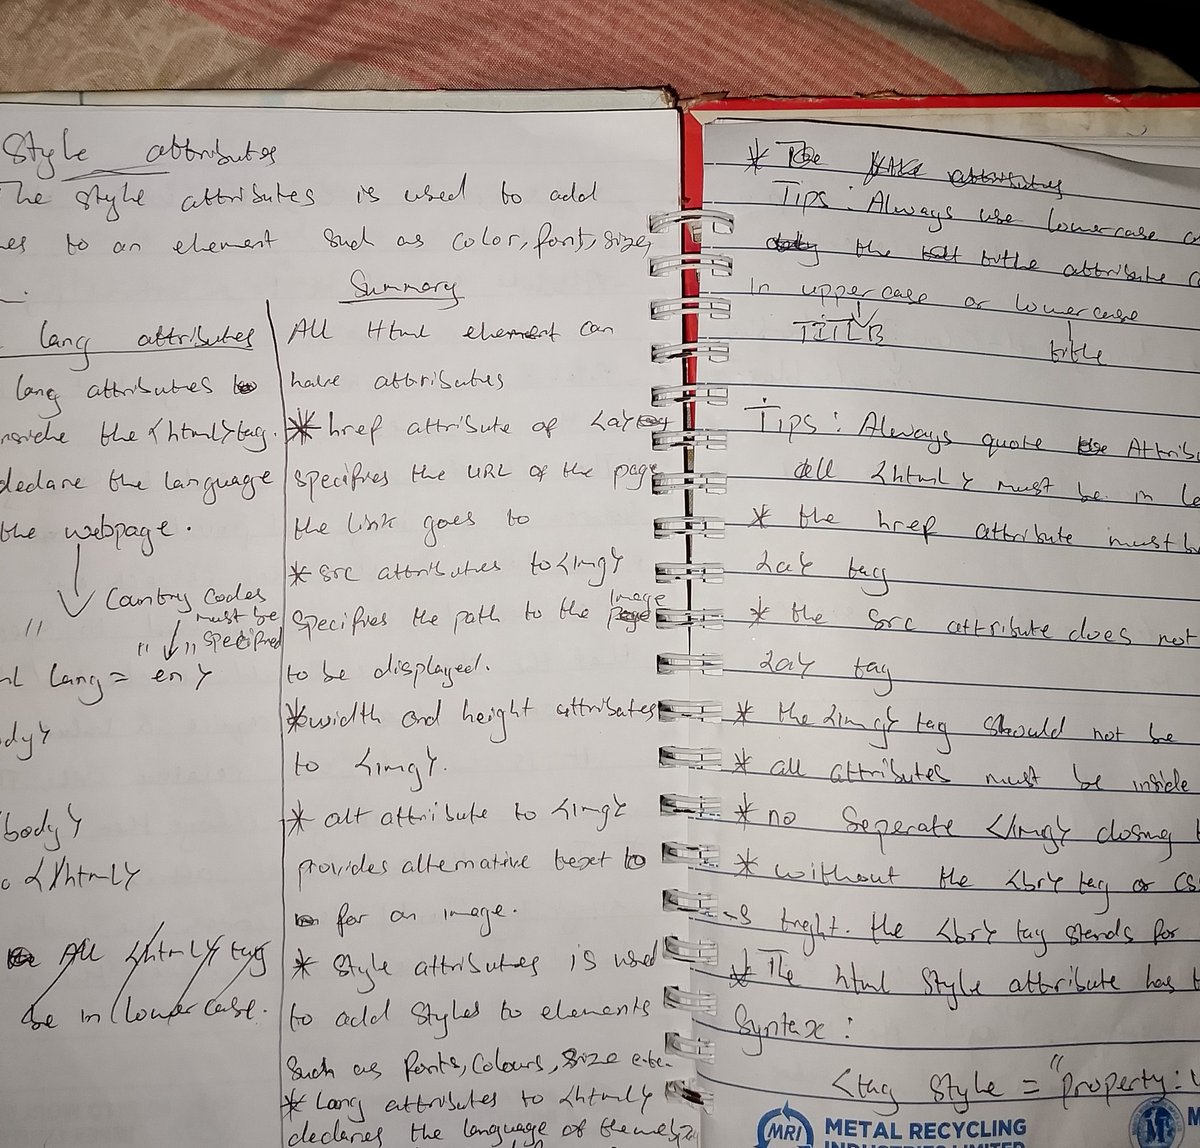 Style attributes
The style attributes is used to add
es to an element such as color, font, size,
lang attributes
lang attributes to
inside the <html> tag.
declare the language
the webpage.
Country Codes
must be
" " specified
"
lang = en >
body>
/body>
</html>
All <html> tag
be in lowercase.
Summary
All Html element can
have attributes
* href attribute of <a> tag
specifies the URL of the page
the link goes to
* src attributes to <img>
Image
specifies the path to the page
to be displayed.
* width and height attributes
to <img>.
* alt attribute to <img>
provides alternative text to
for an image.
* Style attributes is used
to add styles to elements
such as fonts, Colours, size etc.
* Lang attributes to <html>
declares the language of the
* The attributes
Tips : Always use lowercase
the title attribute
in uppercase or lowercase
TITLE
title
Tips : Always quote the Attrib
all <html> must be in
* the href attribute must
<a> tag
* the src attribute does not
<a> tag
* the <img> tag should not be
* all attributes must be inside
* no seperate </img> closing
* without the <br> tag or CS
the <br> tag stands for
* The html Style attribute has
Syntax :
<tag style = "property :
MRI
METAL RECYCLING
INDUSTRIES LIMITED
M